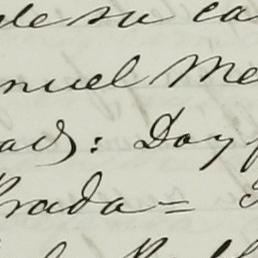 de su ca
nuel Me
ad: Doy f
Prada =